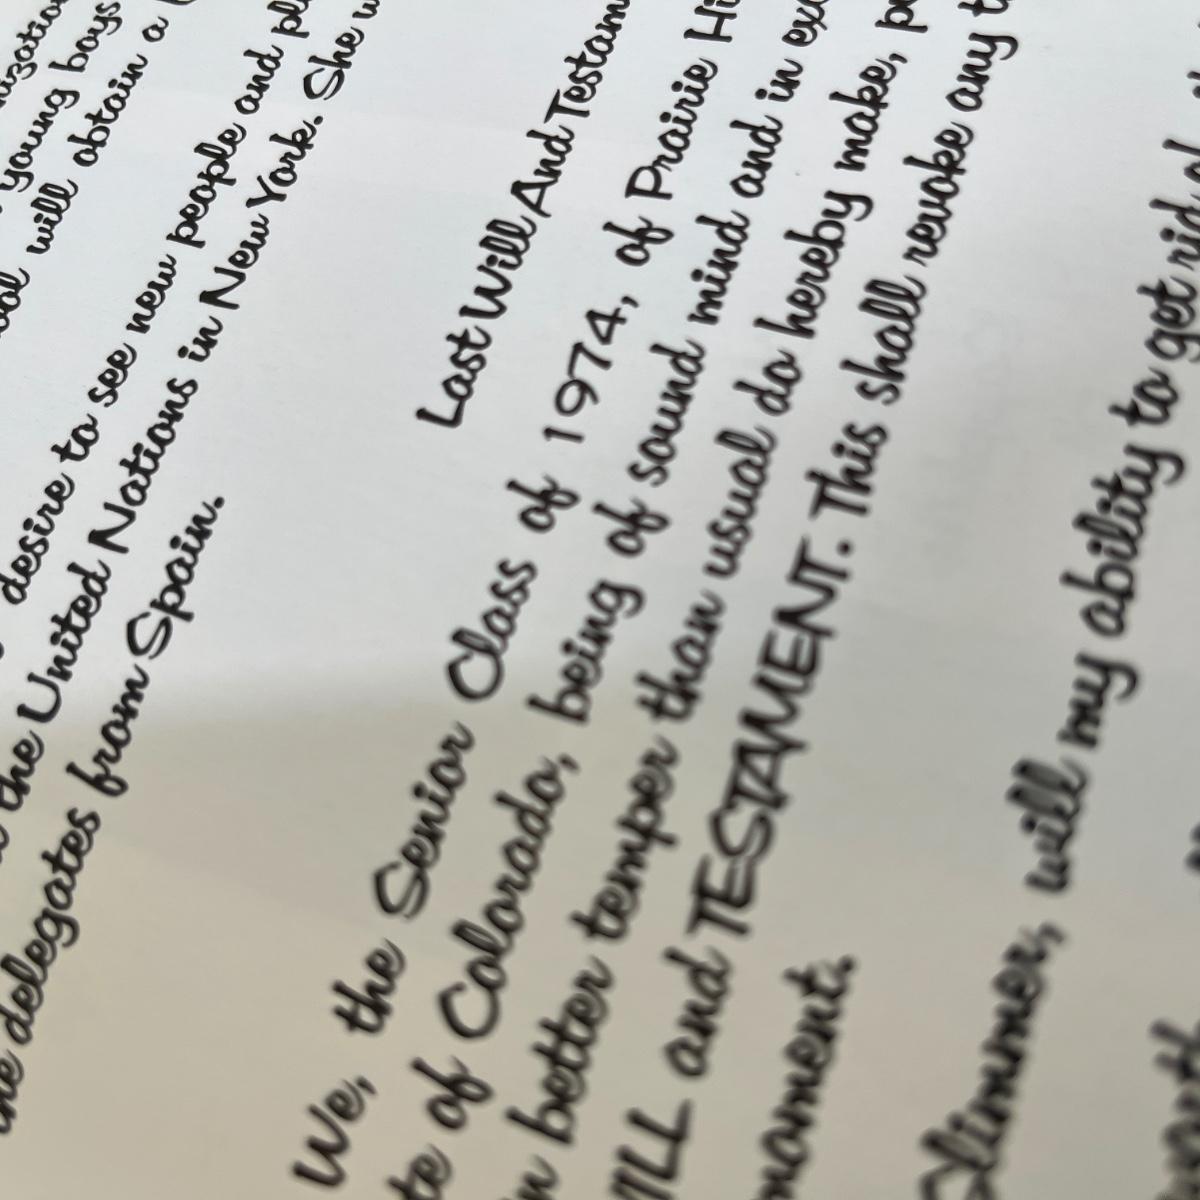 young boys
will obtain a
desire to see new people and
the United Nations in New York. She
delegates from Spain.
Last Will And Testam
We, the Senior Class of 1974, of Prairie Hi
te of Colorado, being of sound mind and in exc
n better temper than usual do hereby make, p
ILL and TESTAMENT. This shall revoke any t
moment.
Slimmer, will my ability to get rid